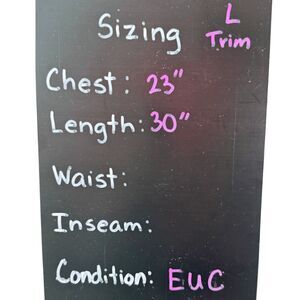 Sizing L
Trim
Chest: 23"
Length: 30"
Waist:
Inseam:
Condition: EUC